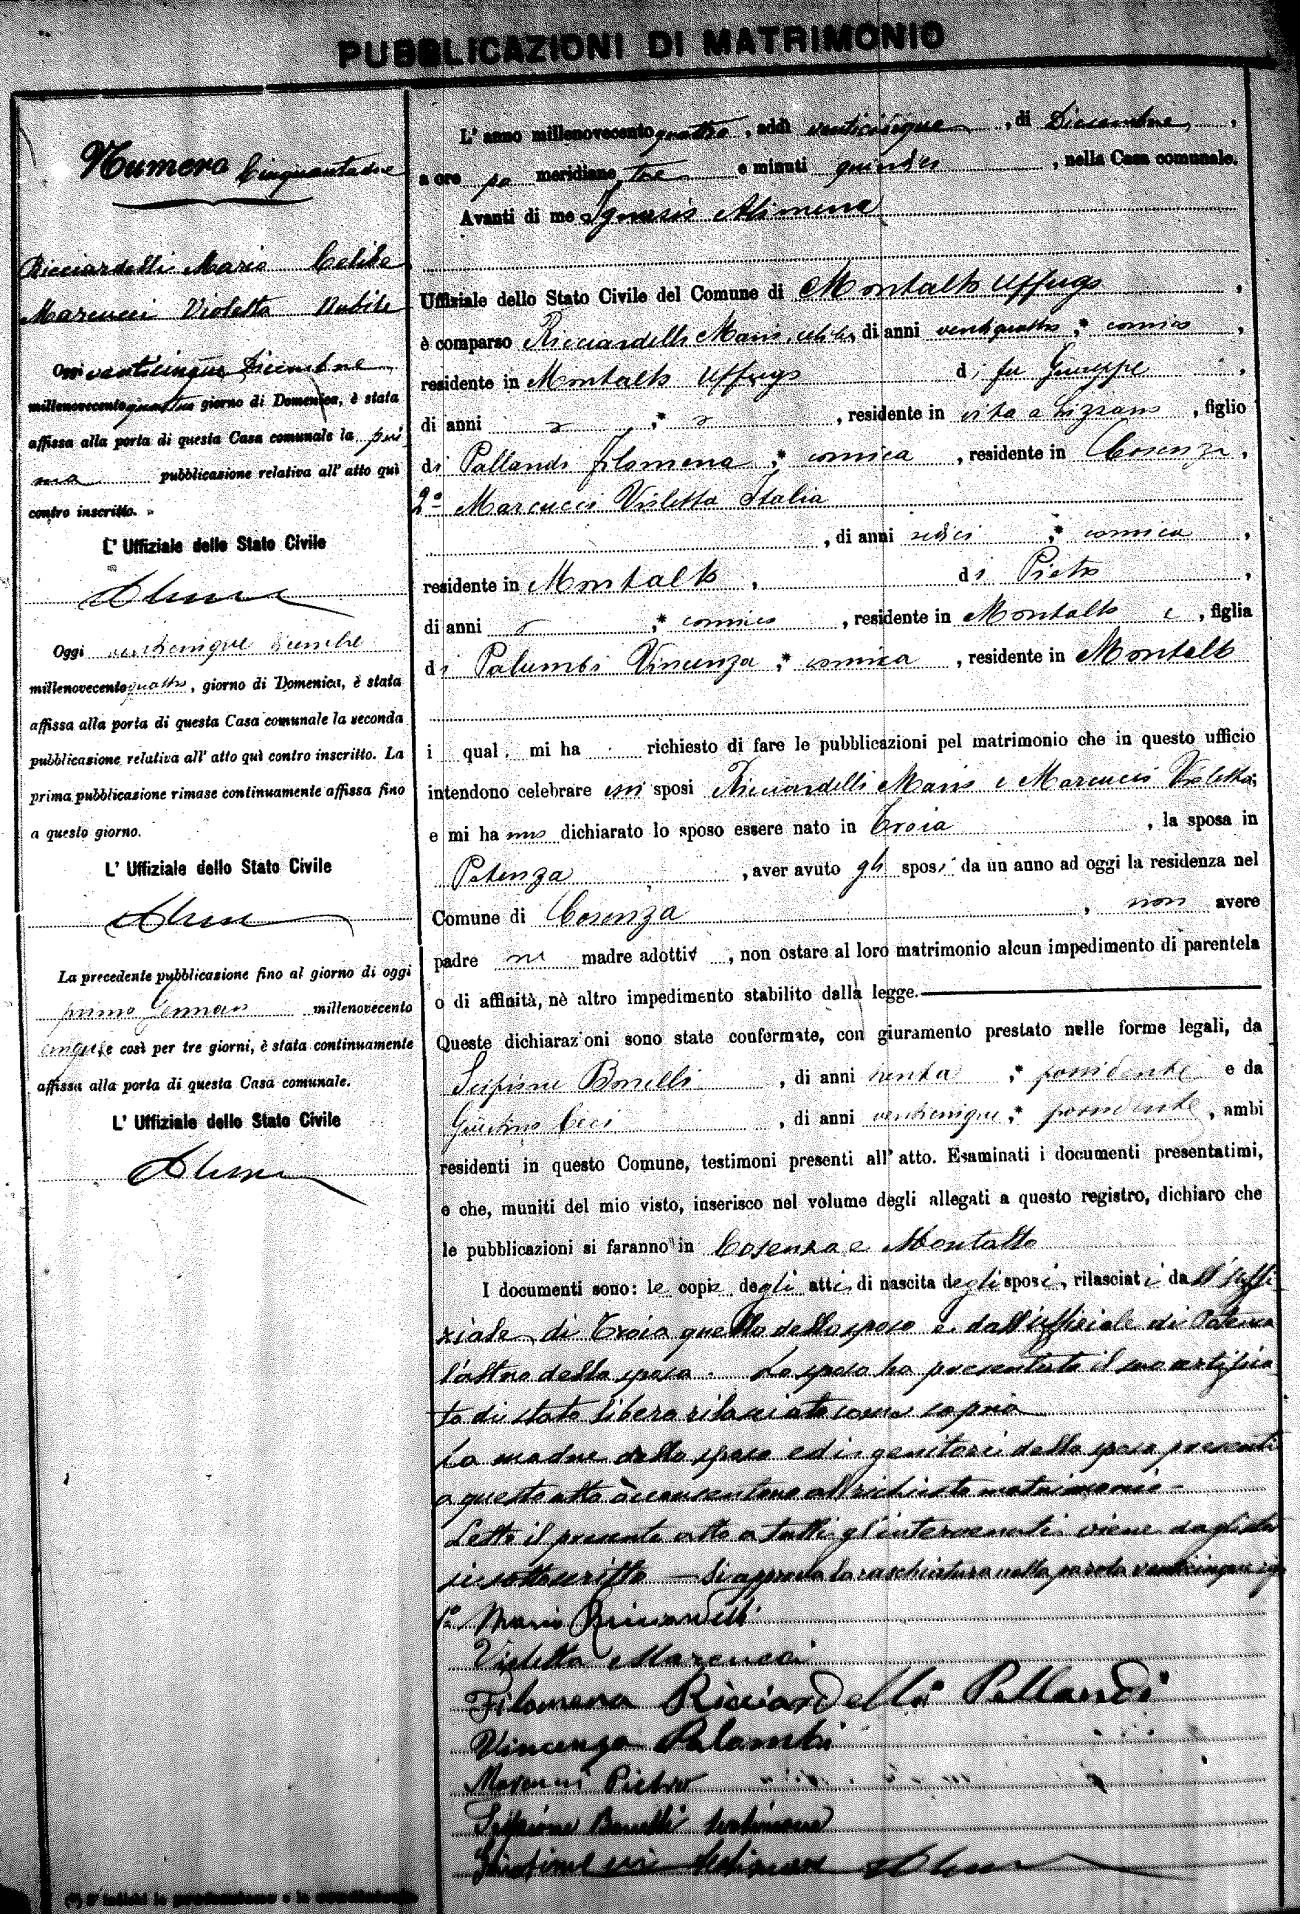 PUBBLICAZIONI DI MATRIMONIO
Numero Cinquantadue
Ricciardelli Mario Celibe
Marcucci Violetta Nubile
Oggi venticinque Dicembre
millenovecento quattro giorno di Domenica, è stata
affissa alla porta di questa Casa comunale la pri
ma pubblicazione relativa all' atto quì
contro inscritto.
L' Uffiziale dello Stato Civile
Oggi venticinque Dicembre
millenovecento quattro, giorno di Domenica, è stata
affissa alla porta di questa Casa comunale la seconda
pubblicazione relativa all' atto quì contro inscritto. La
prima pubblicazione rimase continuamente affissa fino
a questo giorno.
L' Uffiziale dello Stato Civile
La precedente pubblicazione fino al giorno di oggi
primo Gennaio millenovecento
cinque e così per tre giorni, è stata continuamente
affissa alla porta di questa Casa comunale.
L' Uffiziale dello Stato Civile
L' anno millenovecento quattro, addì venticinque, di Dicembre,
a ore po meridiane tre e minuti quindici, nella Casa comunale.
Avanti di me Ignazio Alimena
Uffiziale dello Stato Civile del Comune di Montalto Uffugo,
è comparso Ricciardelli Mario, celibe, di anni ventiquattro,* comico,
residente in Montalto Uffugo di fu Giuseppe,
di anni ,* , residente in vita a Lizzano, figlio
di Pallandi Filomena,* comica, residente in Cosenza,
2º Marcucci Violetta Italia
, di anni sedici,* comica,
residente in Montalto, di Pietro,
di anni ,* comico, residente in Montalto e, figlia
di Palumbi Vincenza,* comica, residente in Montalto
i qual mi ha richiesto di fare le pubblicazioni pel matrimonio che in questo ufficio
intendono celebrare essi sposi Ricciardelli Mario e Marcucci Violetta;
e mi ha nno dichiarato lo sposo essere nato in Troia, la sposa in
Potenza, aver avuto gli sposi da un anno ad oggi la residenza nel
Comune di Cosenza, non avere
padre ne madre adottiv, non ostare al loro matrimonio alcun impedimento di parentela
o di affinità, nè altro impedimento stabilito dalla legge.
Queste dichiarazioni sono state confermate, con giuramento prestato nelle forme legali, da
Scipione Bonelli, di anni trenta,* possidente e da
Giustino Ceci, di anni venticinque,* possidente, ambi
residenti in questo Comune, testimoni presenti all' atto. Esaminati i documenti presentatimi,
e che, muniti del mio visto, inserisco nel volume degli allegati a questo registro, dichiaro che
le pubblicazioni si faranno in Cosenza e Montalto
I documenti sono: le copie degli atti di nascita degli sposi, rilasciati dall'Uffi
ziale di Troia quello dello sposo e dall'Ufficiale di Potenza
l'altro della sposa. Lo sposo ha presentato il suo certifica
to di stato libero rilasciato come sopra
La madre dello sposo ed i genitori della sposa presenti
a questo atto acconsentono al richiesto matrimonio -
Letto il presente atto a tutti gl'intervenuti viene dagli stes
si sottoscritto — Si approva la raschiatura nella parola venticinque
1º Mario Ricciardelli
Violetta Marcucci
Filomena Ricciardelli Pallandi
Vincenza Palumbi
Marcucci Pietro
Scipione Bonelli testimone
Giustino Ceci testimone